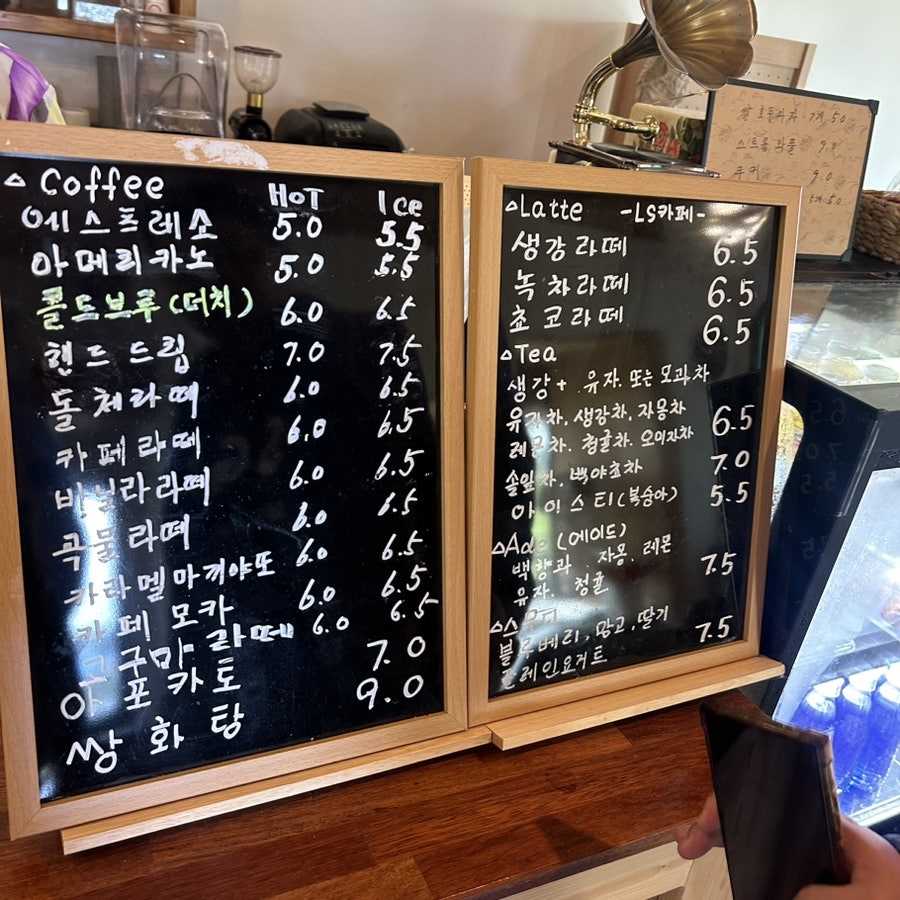 △ Coffee HOT Ice
에스프레소 5.0 5.5
아메리카노 5.0 5.5
콜드브루(더치) 6.0 6.5
핸드드립 7.0 7.5
돌체라떼 6.0 6.5
카페라떼 6.0 6.5
바닐라라떼 6.0 6.5
곡물라떼 6.0 6.5
카라멜마끼야또 6.0 6.5
카페모카 6.0 6.5
고구마라떼 6.0 6.5
아포카토 7.0
쌍화탕 9.0
△Latte -LS카페-
생강라떼 6.5
녹차라떼 6.5
쵸코라떼 6.5
△Tea
생강+ 유자. 또는 모과차
유자차, 생강차, 자몽차 6.5
레몬차, 청귤차, 오미자차
솔잎차, 뽕야효차 7.0
아이스티(복숭아) 5.5
△Ade(에이드)
백향과. 자몽. 레몬 7.5
유자. 청귤
블루베리, 망고, 딸기 7.5
플레인요거트
쌀 7개 5.0
스트롭와플 9.0
쿠키 9.0
5.0